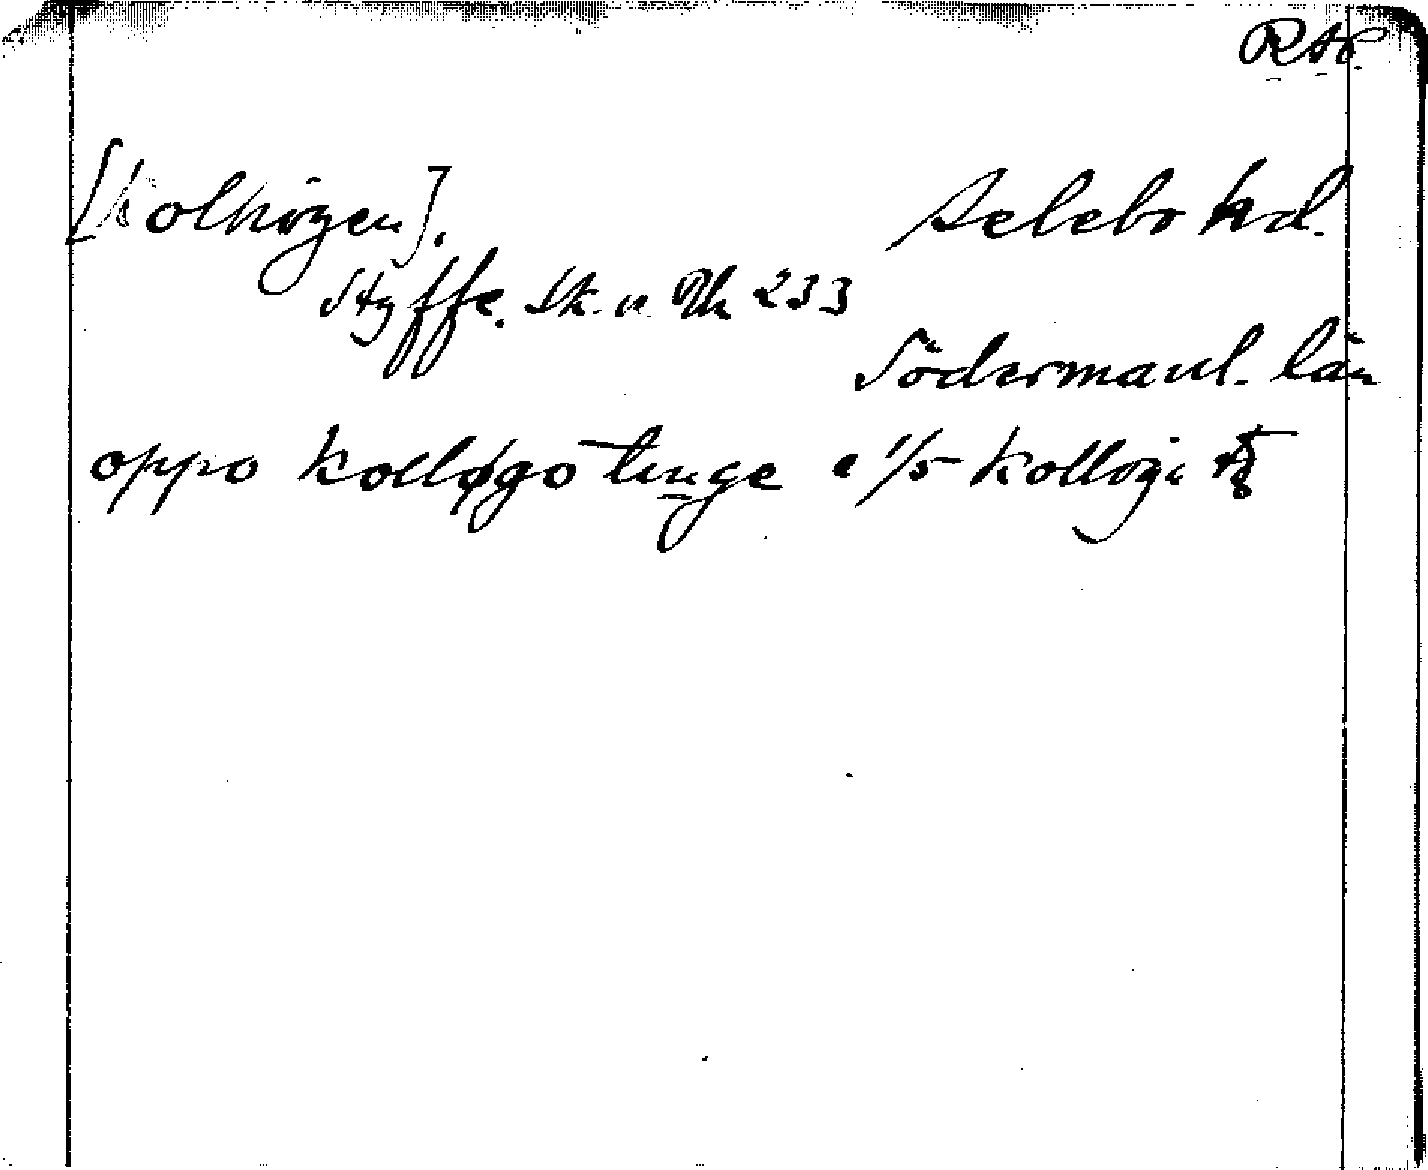 RAP.
[Kolhögen]. Selebo hd.
Styffe. Sk. u. Un 233
Södermanl. län
oppo kolløgo tinge 1/5 Kolløgi